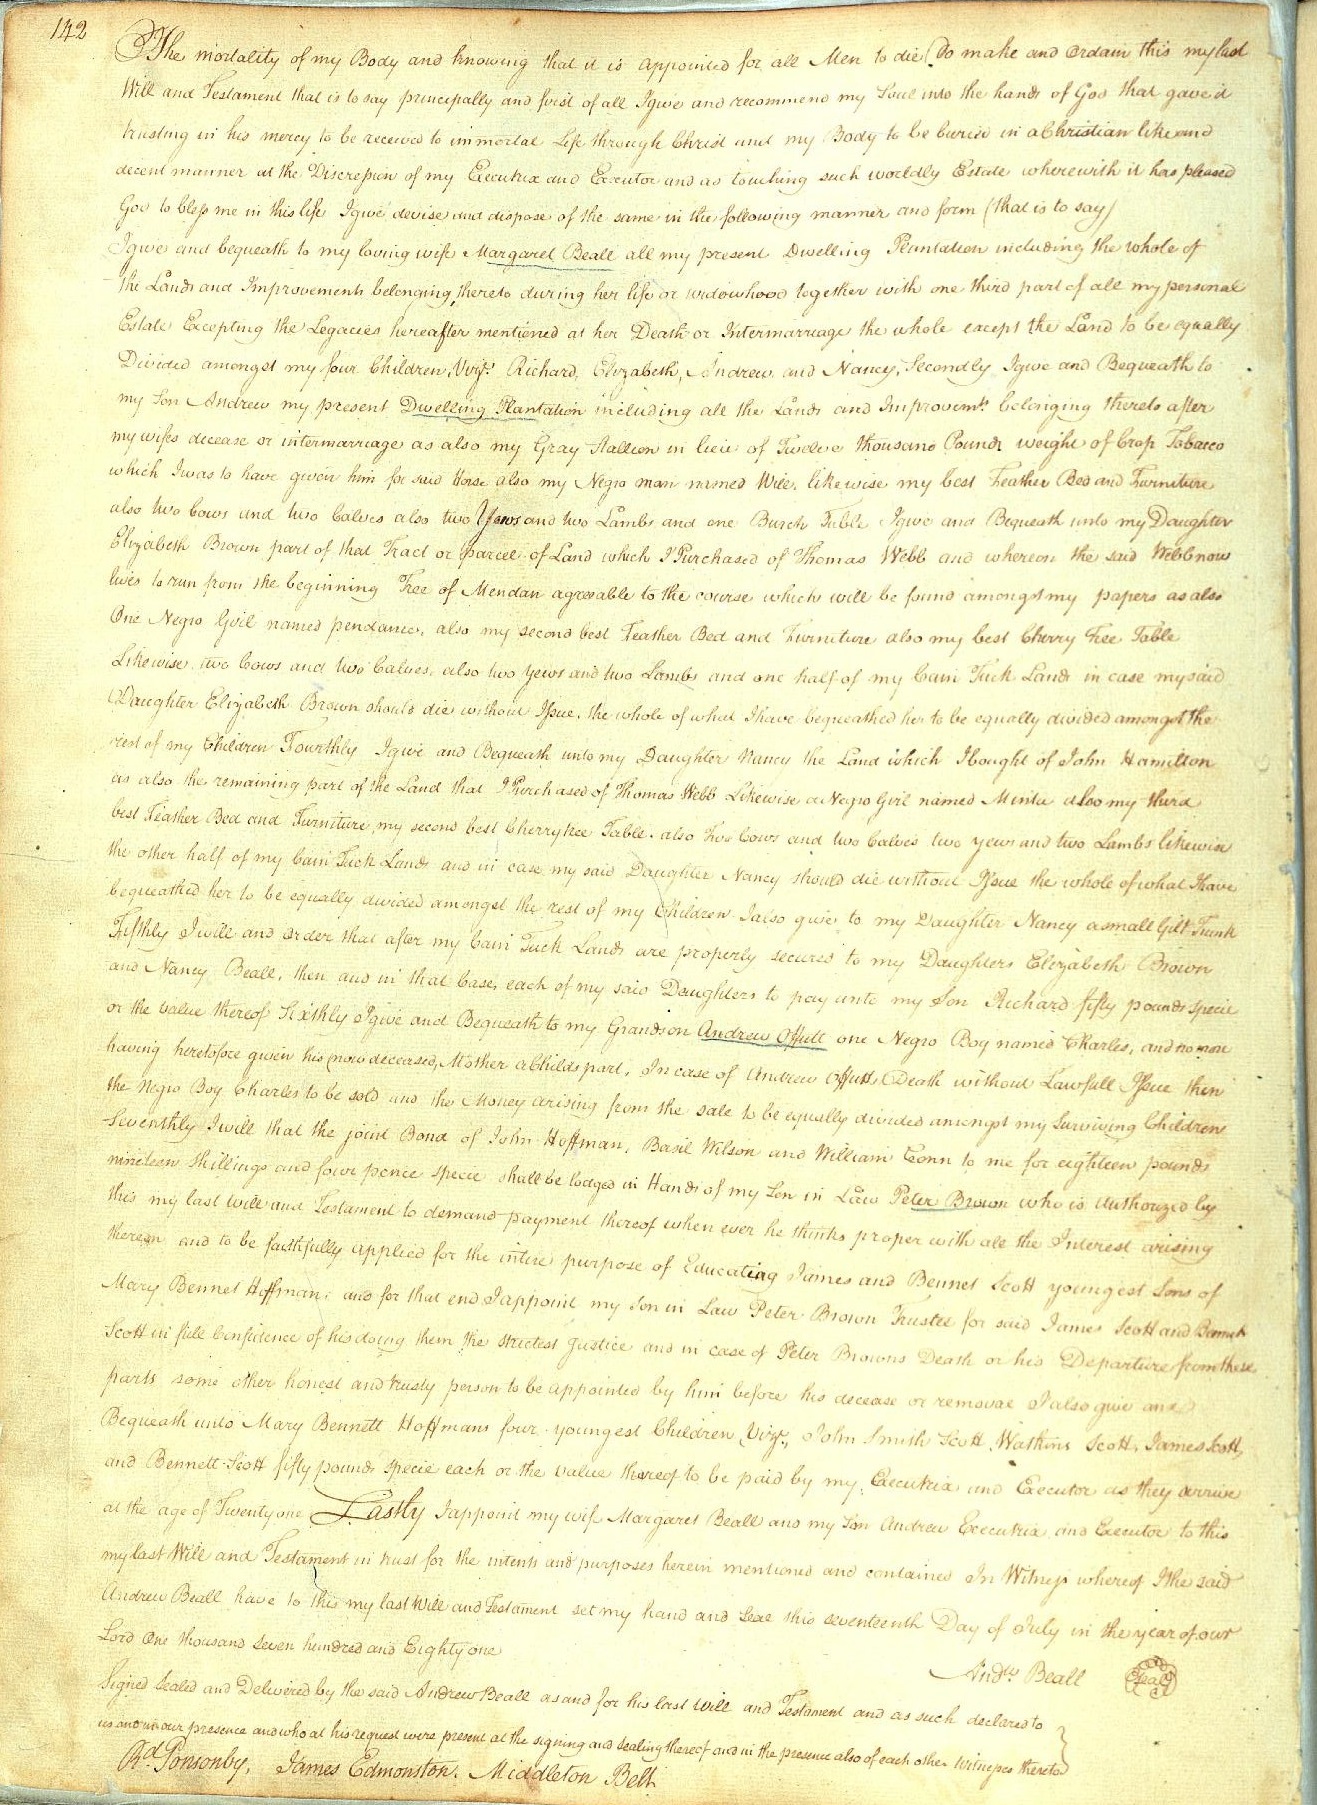 142
The mortality of my Body and knowing that it is appointed for all Men to die Do make and Ordain this my last
Will and Testament that is to say principally and first of all I give and recommend my Soul into the hands of God that gave it
trusting in his mercy to be received to immortal Life through Christ and my Body to be buried in a Christian like and
decent manner at the Discresion of my Executrix and Executor and as touching such worldly Estate wherewith it has pleased
God to bless me in this life I give devise and dispose of the same in the following manner and form (that is to say)
I give and bequeath to my loving wife Margaret Beall all my present Dwelling Plantation including the whole of
the Lands and Improvements belonging thereto during her life or widowhood together with one third part of all my personal
Estate Excepting the Legacies hereafter mentioned at her Death or Intermarriage the whole except the Land to be equally
Divided amongst my four Children, Vizt. Richard, Elizabeth, Andrew and Nancy, Secondly I give and Bequeath to
my Son Andrew my present Dwelling Plantation including all the Lands and Improvemts. belonging thereto after
my wifes decease or intermarriage as also my Gray Stallion in lieu of Twelve thousand Pounds weight of Crop Tobacco
which I was to have given him for said Horse also my Negro man named Will, likewise my best Feather Bed and Furniture
also two Cows and two Calves also two Yews and two Lambs and one Burch Table I give and Bequeath unto my Daughter
Elizabeth Brown part of that Tract or parcel of Land which I Purchased of Thomas Webb and whereon the said Webb now
lives to run from the beginning Tree of Mendan agreable to the course which will be found amongst my papers as also
One Negro Girl named pendance, also my second best Feather Bed and Furniture also my best Cherry Tree Table
Likewise two Cows and two Calves, also two yews and two Lambs and one half of my Cain Tuck Lands in case my said
Daughter Elizabeth Brown should die without Issue, the whole of what I have bequeathed her to be equally divided amongst the
rest of my Children Fourthly I give and Bequeath unto my Daughter Nancy the Land which I bought of John Hamilton
as also the remaining part of the Land that I Purchased of Thomas Webb Likewise a Negro Girl named Minta also my third
best Feather Bed and Furniture my second best Cherrytree Table also Two Cows and two Calves two yews and two Lambs likewise
the other half of my Cain Tuck Lands and in case my said Daughter Nancy should die without Issue the whole of what I have
bequeathed her to be equally divided amongst the rest of my Children I also give to my Daughter Nancy a small Gilt Trunk
Fifthly I will and order that after my Cain Tuck Lands are properly secured to my Daughters Elizabeth Brown
and Nancy Beall, then and in that Case, each of my said Daughters to pay unto my Son Richard fifty pounds specie
or the value thereof Sixthly I give and Bequeath to my Grandson Andrew Offutt one Negro Boy named Charles, and no more
having heretofore given his (now deceased) Mother a Childs part, In case of Andrew Offutts Death without Lawfull Issue then
the Negro Boy Charles to be sold and the Money arising from the sale to be equally divided amongst my Surviving Children
Seventhly I will that the joint Bond of John Hoffman, Basil Wilson and William Conn to me for eighteen pounds
nineteen shillings and four pence specie shall be lodged in Hands of my Son in Law Peter Brown who is Authorized by
this my last will and Testament to demand payment thereof when ever he thinks proper with all the Interest arising
thereon and to be faithfully applied for the intire purpose of Educating James and Bennet Scott youngest Sons of
Mary Bennet Hoffman, and for that end I appoint my Son in Law Peter Brown Trustee for said James Scott and
Scott in full Confidence of his doing them the strictest Justice and in case of Peter Browns Death or his Departure from these
parts some other honest and trusty person to be appointed by him before his decease or removal I also give and
Bequeath unto Mary Bennett Hoffmans four youngest Children Vizt., John Smith Scott, Watkins Scott, James Scott,
and Bennett Scott fifty pounds specie each or the value thereof to be paid by my Executrix and Executor as they arrive
at the age of Twenty one Lastly I appoint my wife Margaret Beall and my Son Andrew Executrix and Executor to this
my last Will and Testament in trust for the intents and purposes herein mentioned and contained In Witness whereof I the said
Andrew Beall have to this my last Will and Testament set my hand and Seal this seventeenth Day of July in the year of our
Lord One thousand Seven hundred and Eighty one
Andw. Beall Seal
Signed Sealed and Delivered by the said Andrew Beall as and for his last will and Testament and as such declared to
us and in our presence and who at his request were present at the signing and sealing thereof and in the presence also of each other Witnesses thereto
Rd. Ponsonby, James Edmonston, Middleton Belt